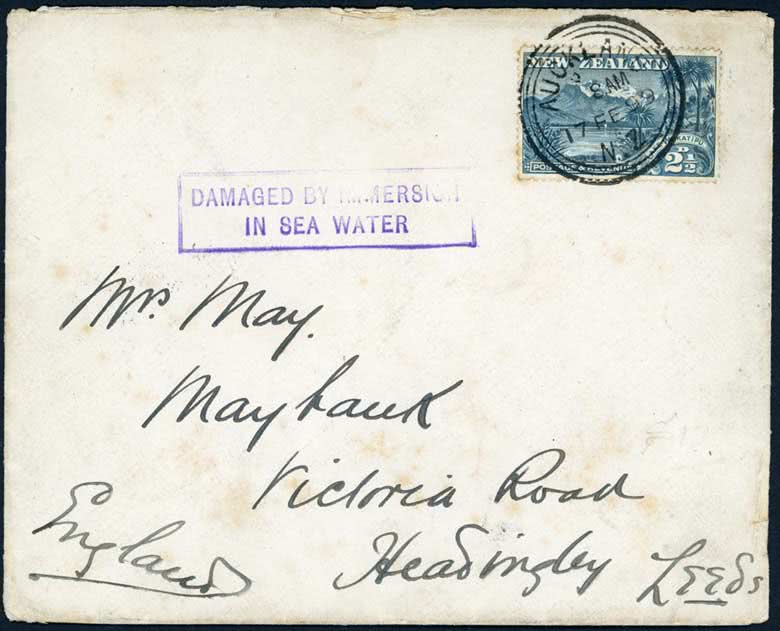 AUCKLAND
8 AM
17 FE 99
N.Z
NEW ZEALAND
WAKATIPU
POSTAGE & REVENUE
2½D
DAMAGED BY IMMERSION
IN SEA WATER
Mrs May.
Maybank
Victoria Road
Headingley Leeds
England